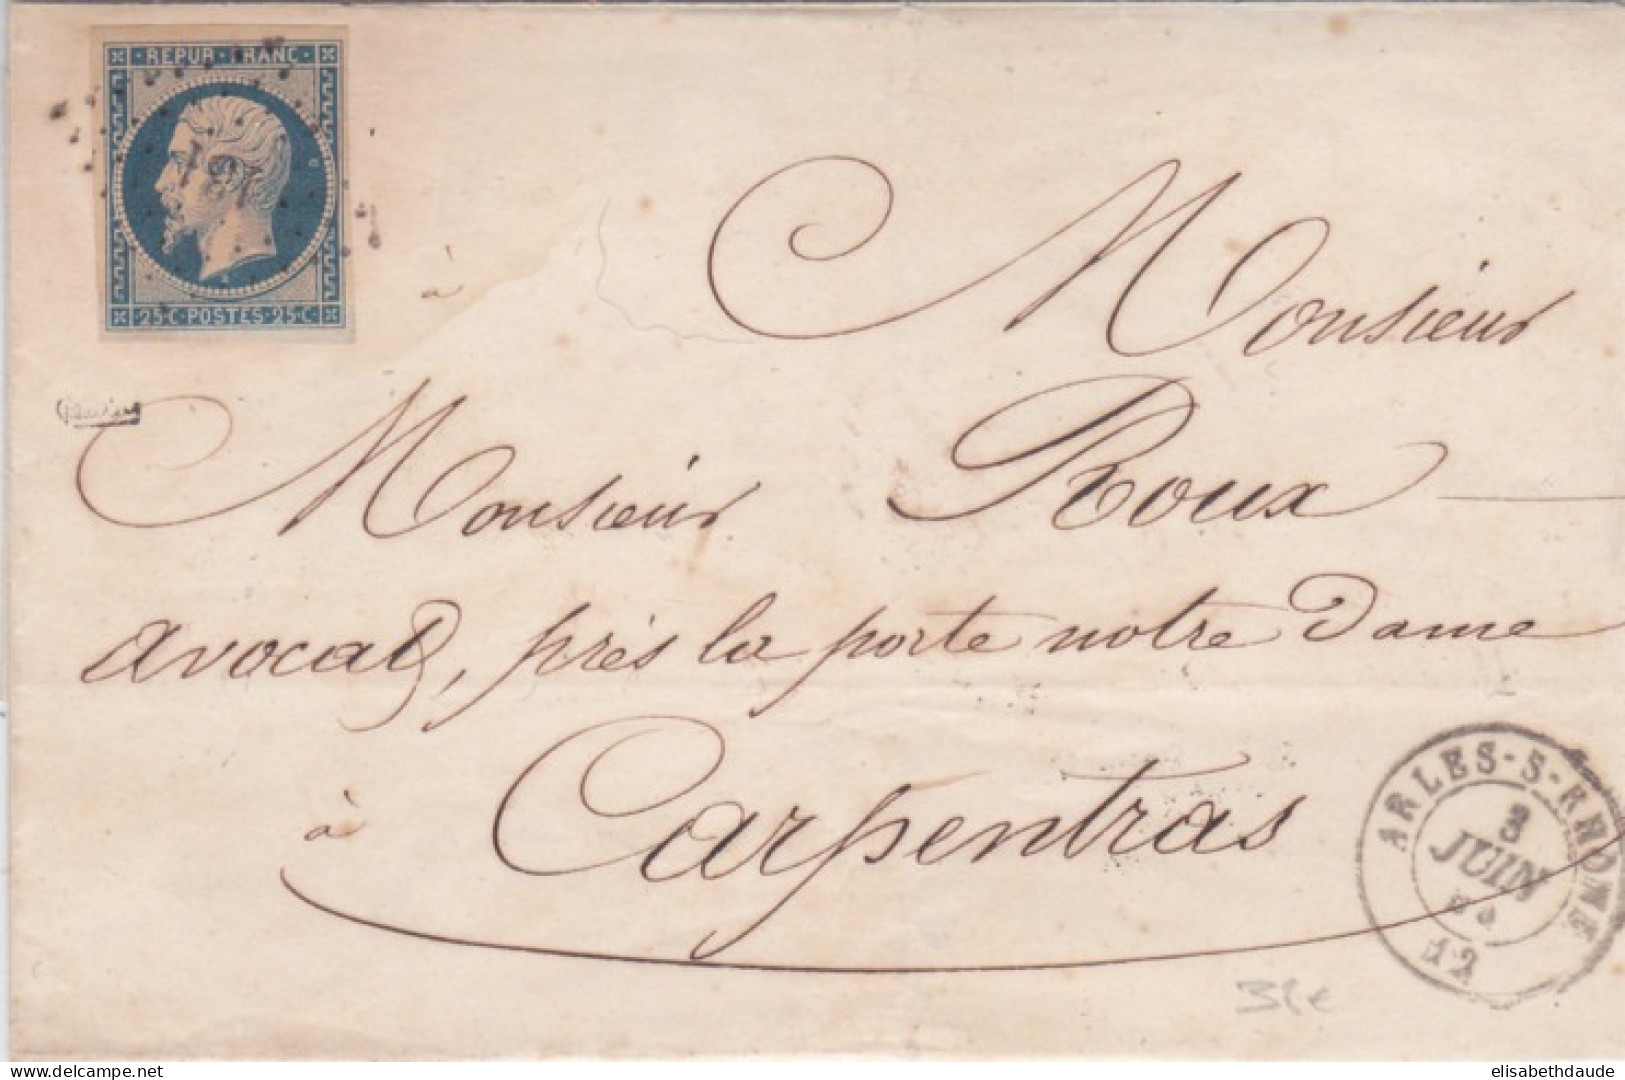 REPUB·FRANC·
25·C·POSTES·25·C
à
Monsieur
Monsieur Roux
avocat, près la porte notre Dame
à Carpentras
ARLES-S-RHONE
3
JUIN
12
elisabethdaude